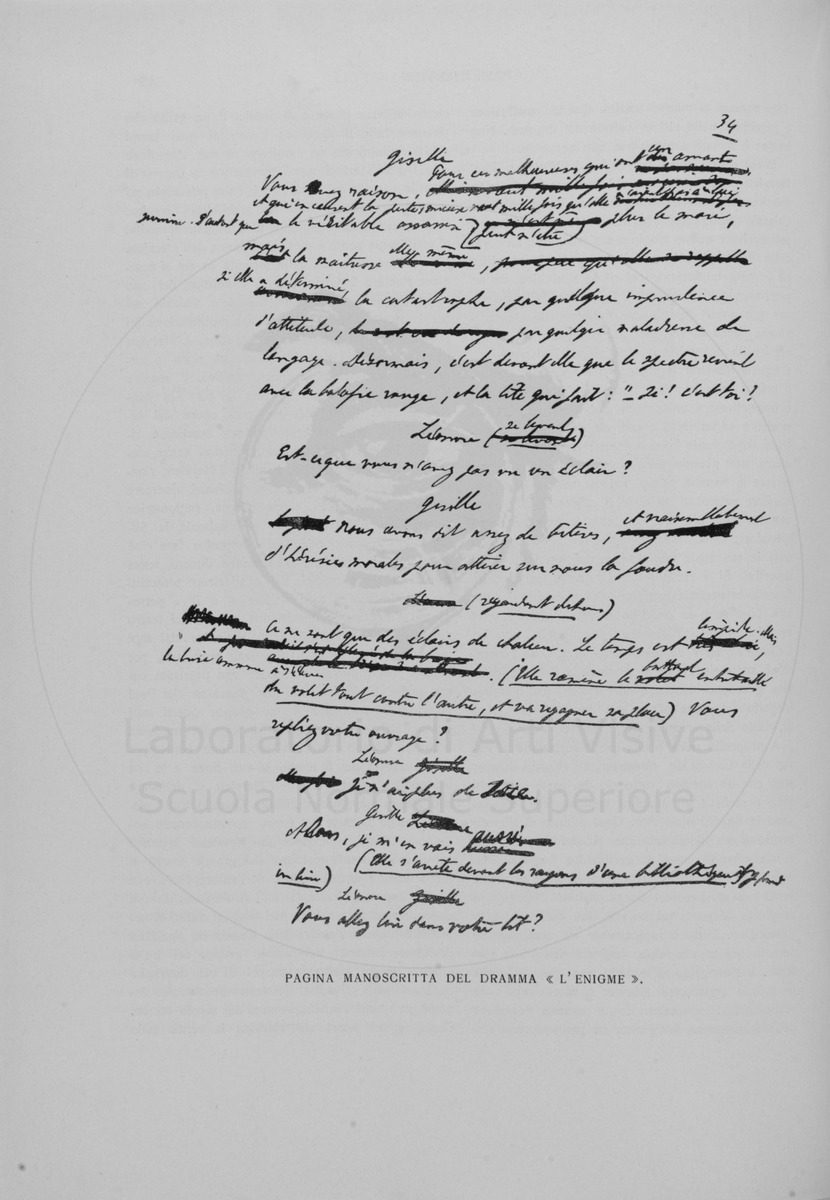 34
Giselle
Pour ces malheureuses qui ont un amant
Vous avez raison,
et qui en causent la perte, mieux vaut mille fois qu'elle
le véritable assassin (peut n'être) plus le mari,
mais la maîtresse elle même,
si elle a déterminé,
la catastrophe, par quelque imprudence
d'attitude, par quelque maladresse de
langage. Désormais, c'est devant elle que le spectre revient
avec la balafre rouge, et la tête qui fait : "Si ! c'est toi !
Léonore (se levant)
Est-ce que vous n'avez pas vu un éclair ?
Giselle
nous avons dit assez de bêtises, et vraisemblablement
d'hérésies morales pour attirer sur nous la foudre.
(regardant dehors)
Ce ne sont que des éclairs de chaleur. Le temps est limpide. Mais
la buée commence à s'élever
. (Elle ramène le battant
du volet tout contre l'autre, et va regagner sa place) Vous
repliez votre ouvrage ?
Léonore Giselle
Je n'ai plus de
Giselle
Allons, je m'en vais aussi
(Elle s'arrête devant les rayons d'une bibliothèque et prend
un livre)
Léonore Giselle
Vous allez lire dans votre lit ?
Laboratorio di Arti Visive
Scuola Normale Superiore
PAGINA MANOSCRITTA DEL DRAMMA « L'ENIGME ».